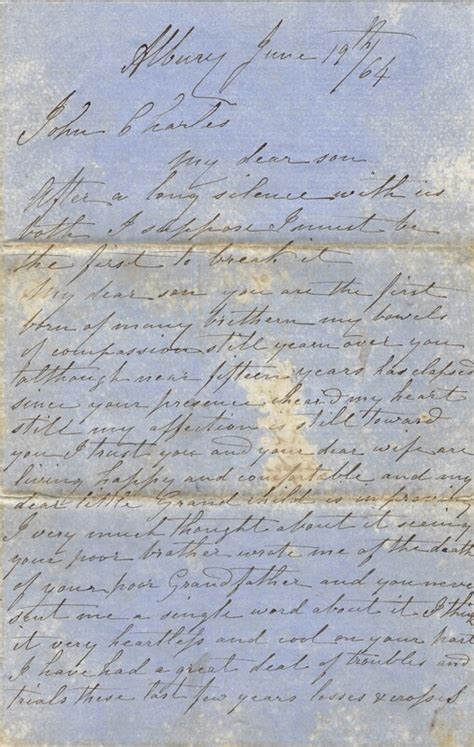 Albury June 19th/64
John Charles
My dear son
After a long silence with us
both I suppose I must be
the first to break it.
My dear son you are the first
born of many brithern my bowels
of compassion still yearn over you
although near fifteen years has elapsed
since your presence cheard my heart
still my affection is still toward
you I trust you and your dear wife are
living happy and comfortable and my
dear little Grand child is improving
I very much thought about it seeing
your poor brother wrote me of the death
of your poor Grandfather and you never
sent me a single word about it I think
it very heartless and cool on your part
I have had a great deal of troubles and
trials these last few years losses & crosses